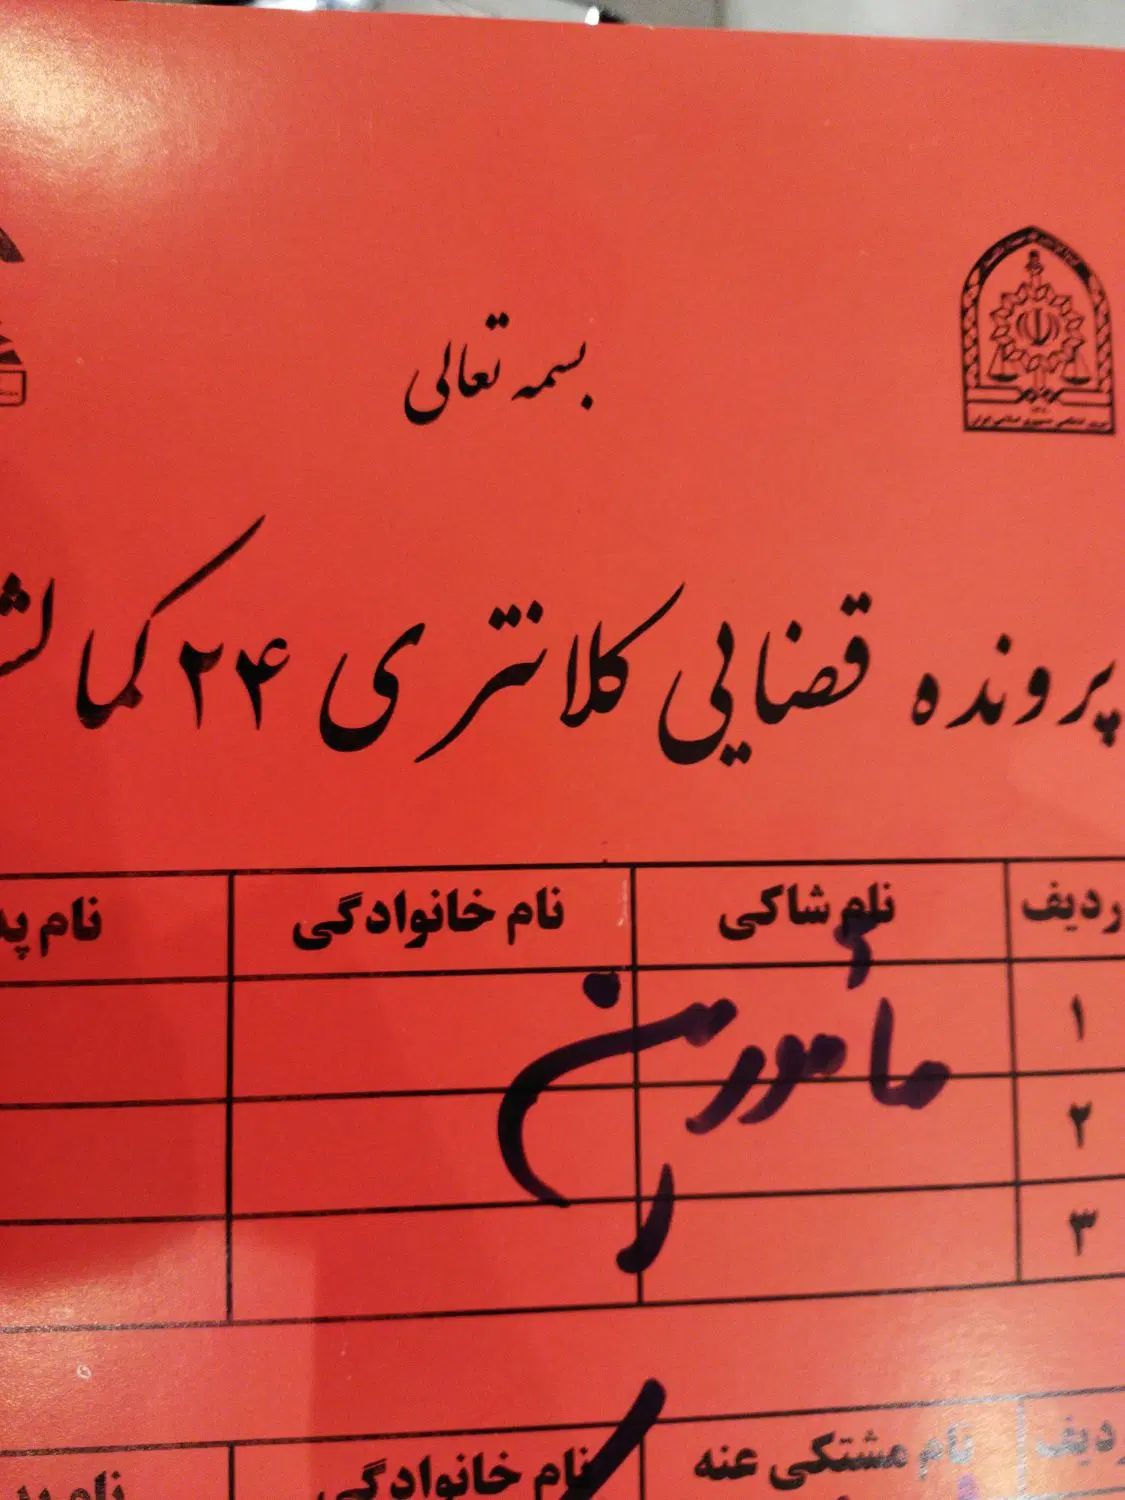 بسمه تعالی
پرونده قضایی کلانتری ۲۴ کمالش
ردیف نام شاکی نام خانوادگی نام پد
۱
مأمورین
۲
۳
ردیف نام مشتکی عنه نام خانوادگی نام پد